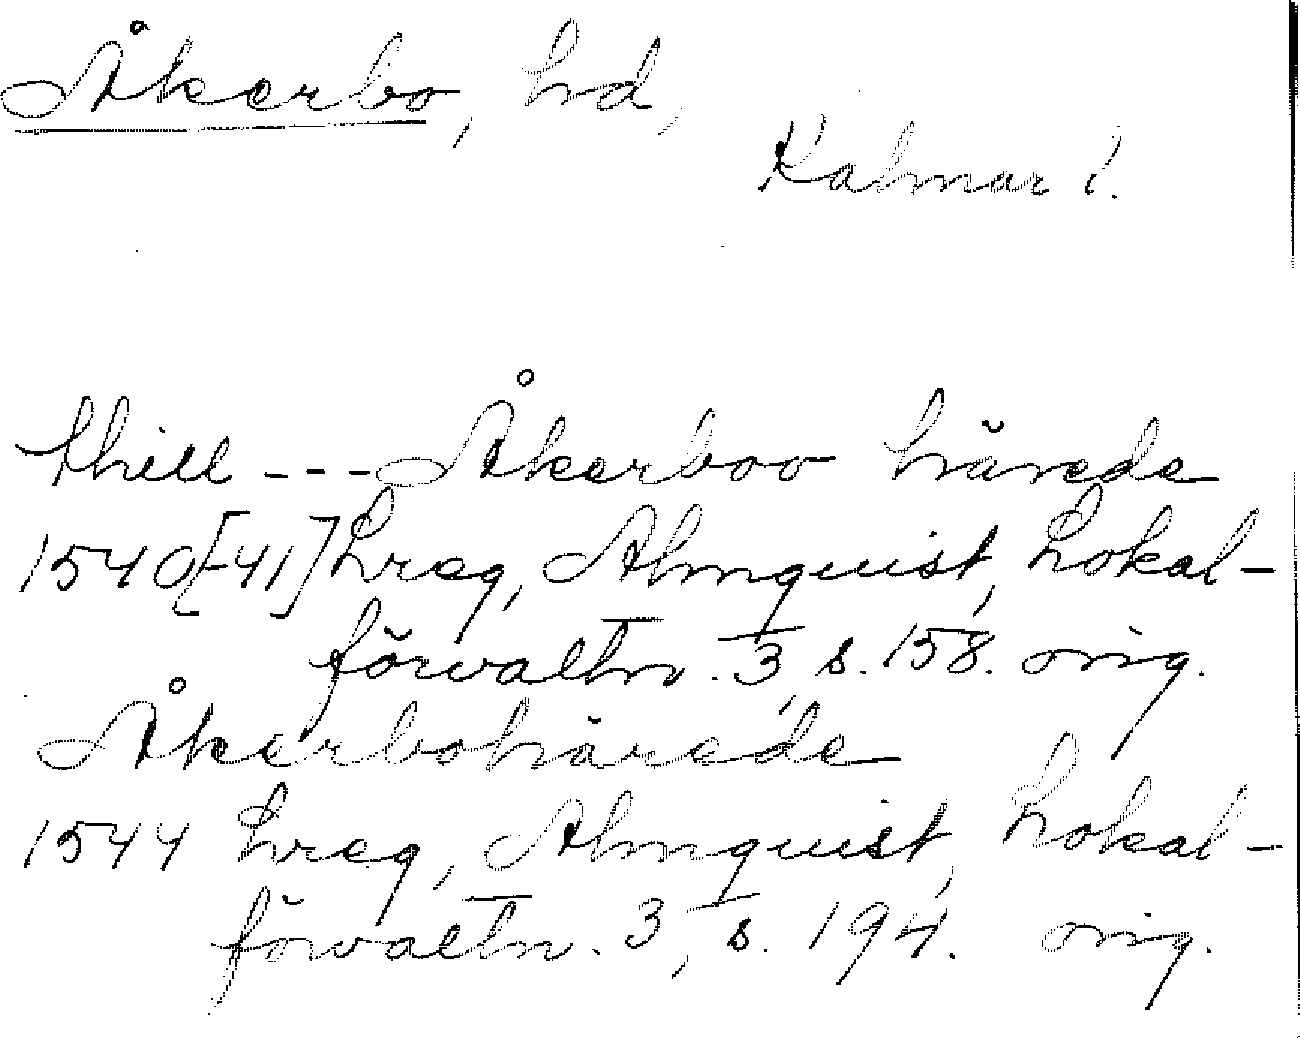 Åkerbo, hd,
Kalmar l.
thill --- Åkerboo härede
1540[-41] Lreg, Almquist, Lokal-
förvaltn. 3, s. 158. orig.
Åkerbohärede
1544 Lreg, Almquist, Lokal-
förvaltn. 3, s. 194. orig.